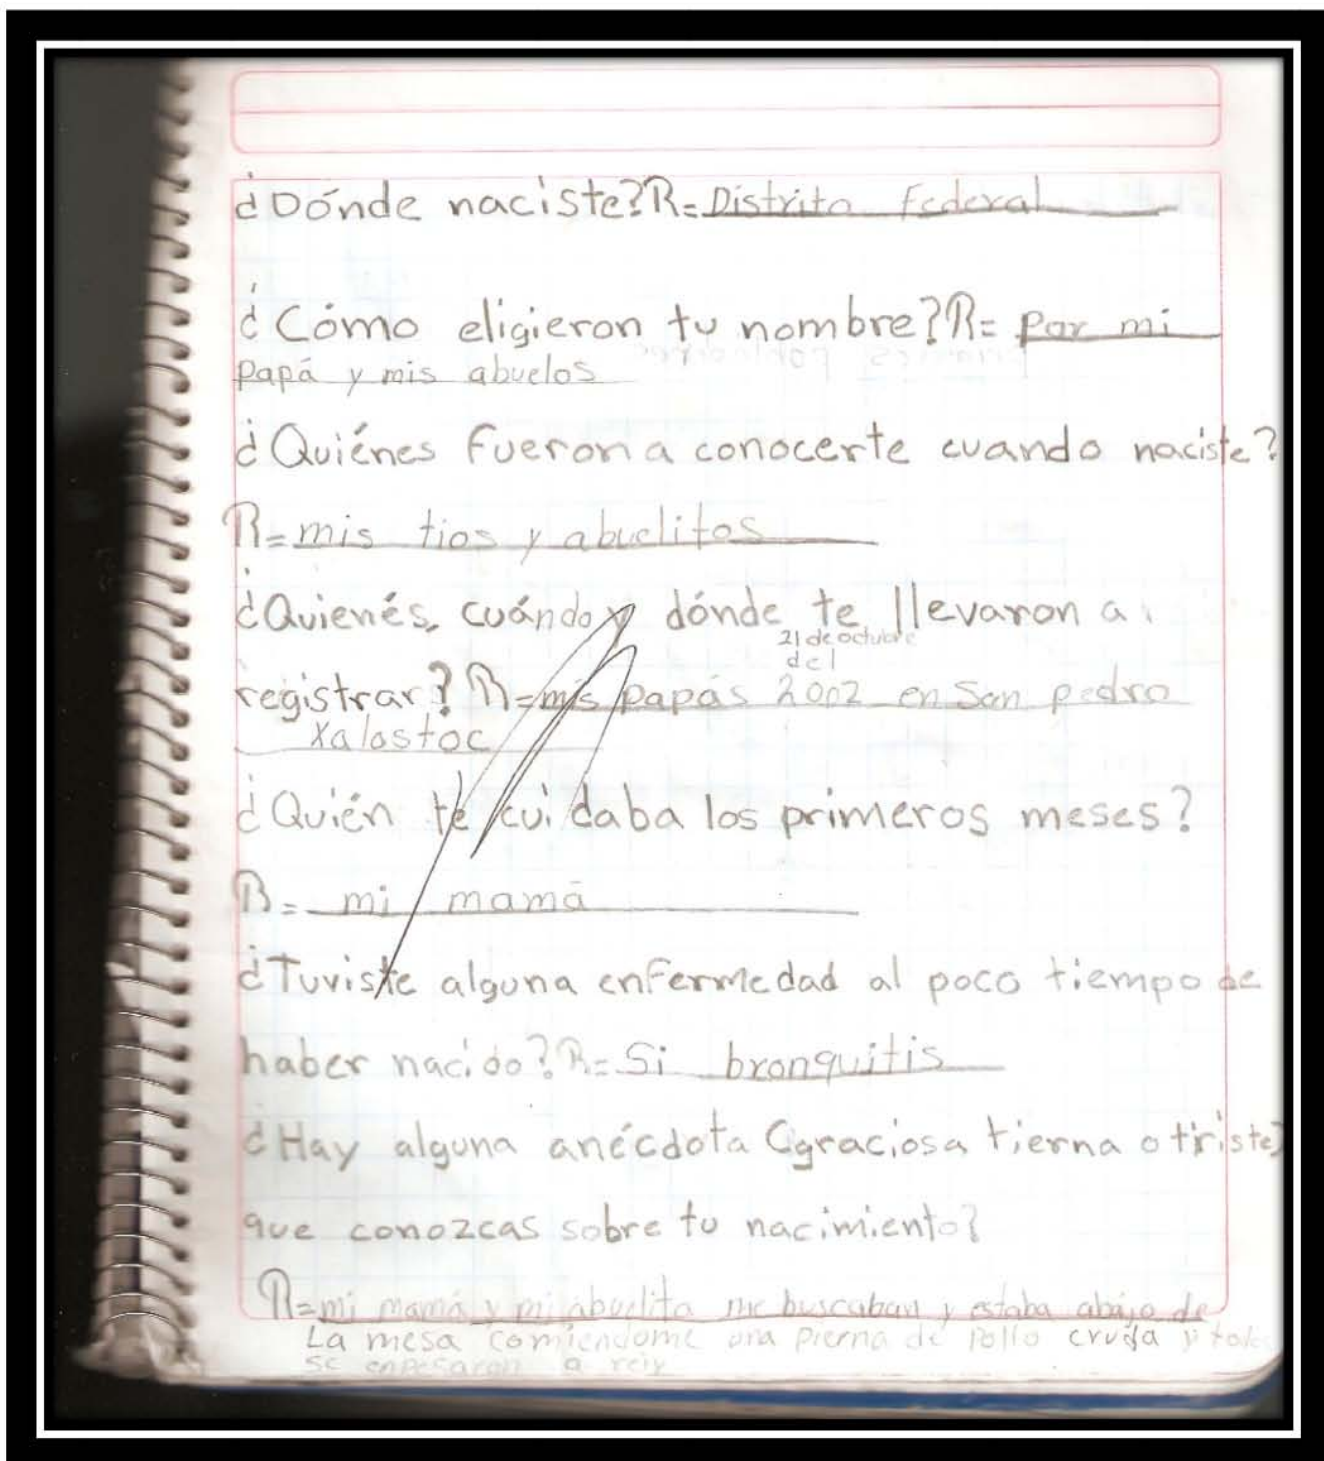 ¿Dónde naciste? R= Distrito Federal
¿Cómo eligieron tu nombre? R= por mi
papá y mis abuelos
¿Quiénes fueron a conocerte cuando naciste?
R= mis tios y abuelitos
¿Quienés, cuándo y dónde te llevaron a
21 de octubre
del
registrar? R= mis papás 2002 en San pedro
Xalostoc
¿Quién te cuidaba los primeros meses?
R= mi mamá
¿Tuviste alguna enfermedad al poco tiempo de
haber nacido? R= Si bronquitis
¿Hay alguna anécdota (graciosa tierna o triste)
que conozcas sobre tu nacimiento?
R= mi mamá y mi abuelita me buscaban y estaba abajo de
La mesa comiendome una pierna de pollo cruda y
se enpesaron a reir